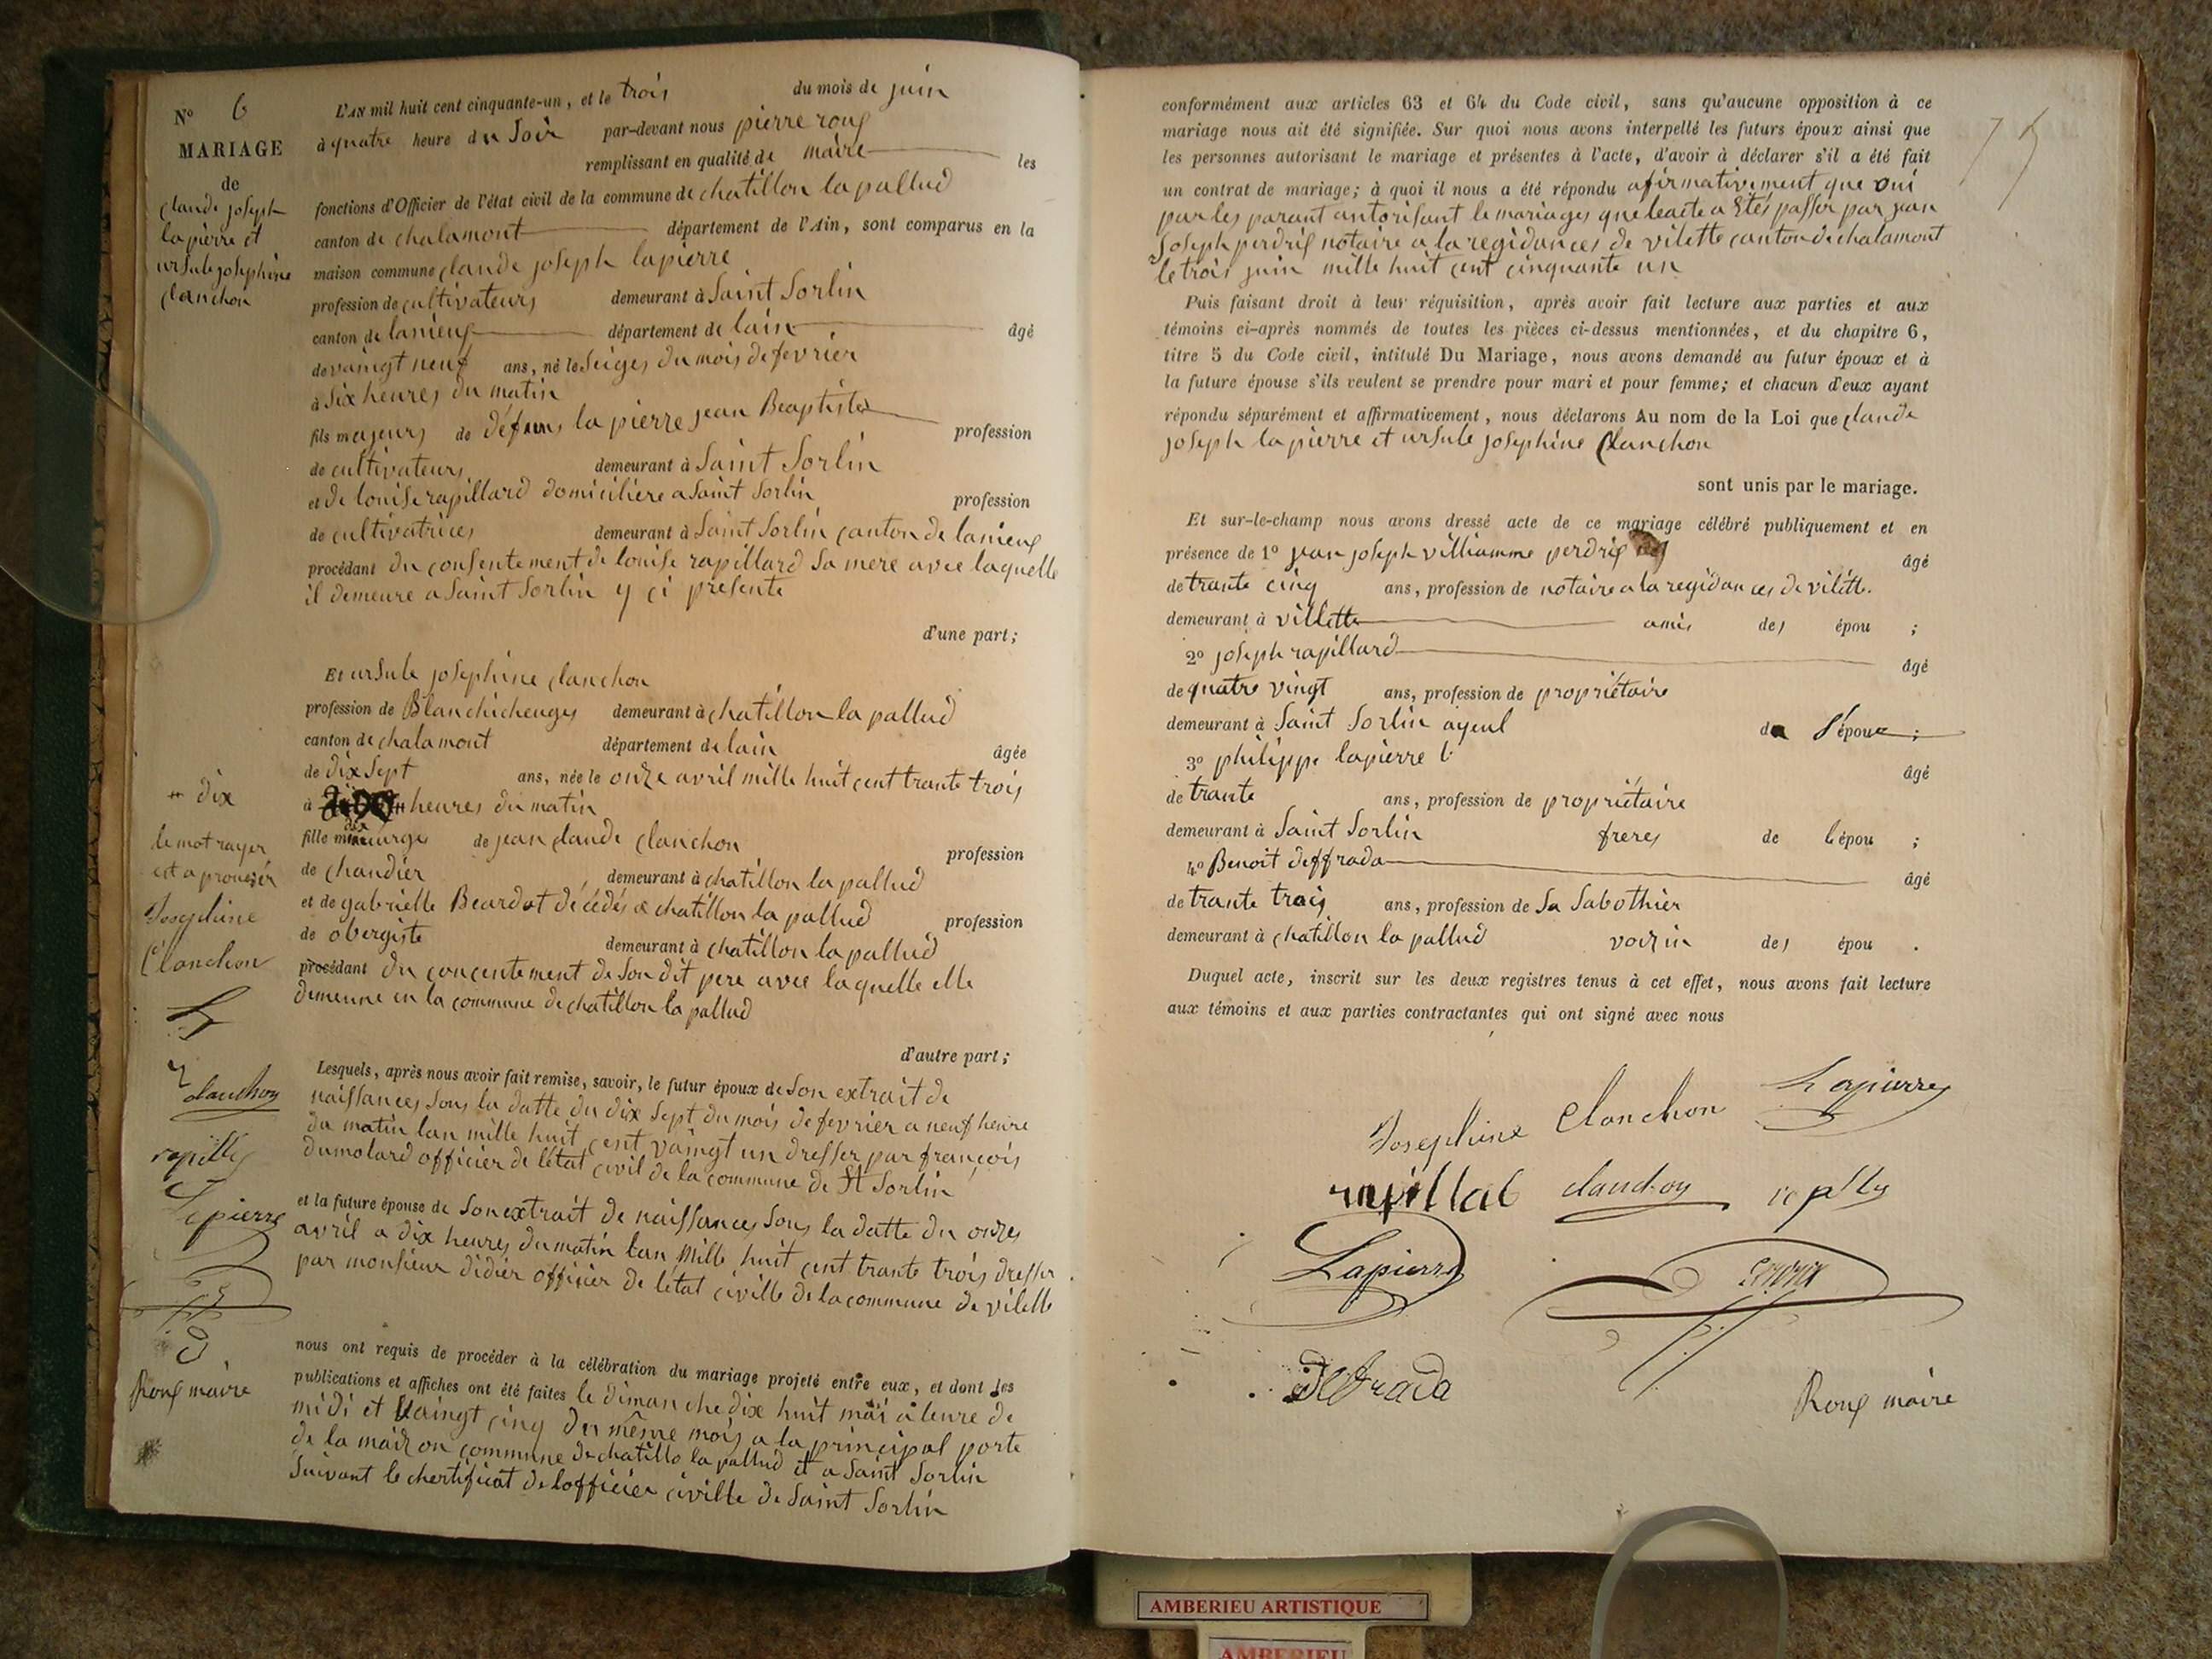 N° 6
MARIAGE
de
claude joseph
lapierre et
ursule josephine
clanchon
L'AN mil huit cent cinquante-un, et le trois du mois de juin
à quatre heure du Soir par-devant nous pierre roux
remplissant en qualité de maire les
fonctions d'Officier de l'état civil de la commune de chatillon la pallud
canton de chalamont département de l'Ain, sont comparus en la
maison commune claude joseph lapierre
profession de cultivateurs demeurant à Saint Sorlin
canton de lanieux département de lain âgé
de vaingt neuf ans, né le Seizes du mois de fevrier
à Six heures du matin
fils majeurs de défuns lapierre jean Beaptiste profession
de cultivateurs demeurant à Saint Sorlin
et de louise rapillard domicilière a Saint Sorlin profession
de cultivatrices demeurant à Saint Sorlin canton de lanieux
procédant du consentement de louise rapillard Sa mere avec laquelle
il demeure a Saint Sorlin y ci presente
d'une part;
Et ursule josephine clanchon
profession de Blanchicheuges demeurant à chatillon la pallud
canton de chalamont département de lain âgée
de dix Sept ans, née le onze avril mille huit cent trante trois
à heures du matin
fille de jean claude clanchon profession
de chandier demeurant à chatillon la pallud
et de gabrielle Beardot décédés a chatillon la pallud profession
de obergiste demeurant à chatillon la pallud
procédant du concentement de Son dit pere avec laquelle elle
demeure en la commune de chatillon la pallud
d'autre part;
dix
le mot rayer
est a prouvér
Josephine
Clanchon
L
clanchon
Lapierre
D
Roux maire
Lesquels, après nous avoir fait remise, savoir, le futur époux de Son extrait de
naissances Sous la datte du dix Sept du mois de fevrier a neuf heure
du matin lan mille huit cent vaingt un dresser par françois
dumolard officier de létat civil de la commune de St Sorlin
et la future épouse de Son extrait de naissances Sous la datte du onzes
avril a dix heures du matin lan mille huit cent trante trois dresser
par monsieur didier officier de létat civille de la commune de vilette
nous ont requis de procéder à la célébration du mariage projeté entre eux, et dont les
publications et affiches ont été faites le dimanche dix huit mai a leure de
midi et vaingt cinq du même mois a la principal porte
de la maizon commune de chatillo la pallud et a Saint Sorlin
Suivant le chertificat de lofficier civille de Saint Sorlin
75
conformément aux articles 63 et 64 du Code civil, sans qu'aucune opposition à ce
mariage nous ait été signifiée. Sur quoi nous avons interpellé les futurs époux ainsi que
les personnes autorisant le mariage et présentes à l'acte, d'avoir à déclarer s'il a été fait
un contrat de mariage; à quoi il nous a été répondu afirmativement que oui
par les parant autorisant le mariages que leacte a Etés passer par jean
Joseph perdrix notaire a la regidances de vilette canton de chalamont
le trois juin mille huit cent cinquante un
Puis faisant droit à leur réquisition, après avoir fait lecture aux parties et aux
témoins ci-après nommés de toutes les pièces ci-dessus mentionnées, et du chapitre 6,
titre 5 du Code civil, intitulé Du Mariage, nous avons demandé au futur époux et à
la future épouse s'ils veulent se prendre pour mari et pour femme; et chacun d'eux ayant
répondu séparément et affirmativement, nous déclarons Au nom de la Loi que claude
joseph lapierre et ursule josephine Clanchon
sont unis par le mariage.
Et sur-le-champ nous avons dressé acte de ce mariage célébré publiquement et en
présence de 1° jean joseph villiamme perdrix âgé
de trante cinq ans, profession de notaire a la regidances de vilette.
demeurant à villette amis des épou ;
2° joseph rapillard âgé
de quatre vingt ans, profession de propriétaire
demeurant à Saint Sorlin ayeul de l'épou ;
3° philippe lapierre âgé
de trante ans, profession de propriétaire
demeurant à Saint Sorlin freres de lépou ;
4° Benoit deffrada âgé
de trante trois ans, profession de Sa Sabothier
demeurant à chatillon la pallud voizin des épou .
Duquel acte, inscrit sur les deux registres tenus à cet effet, nous avons fait lecture
aux témoins et aux parties contractantes qui ont signé avec nous
Josephine Clanchon Lapierre
clanchon
Lapierre
Defrada
Roux maire
AMBERIEU ARTISTIQUE
AMBERIEU